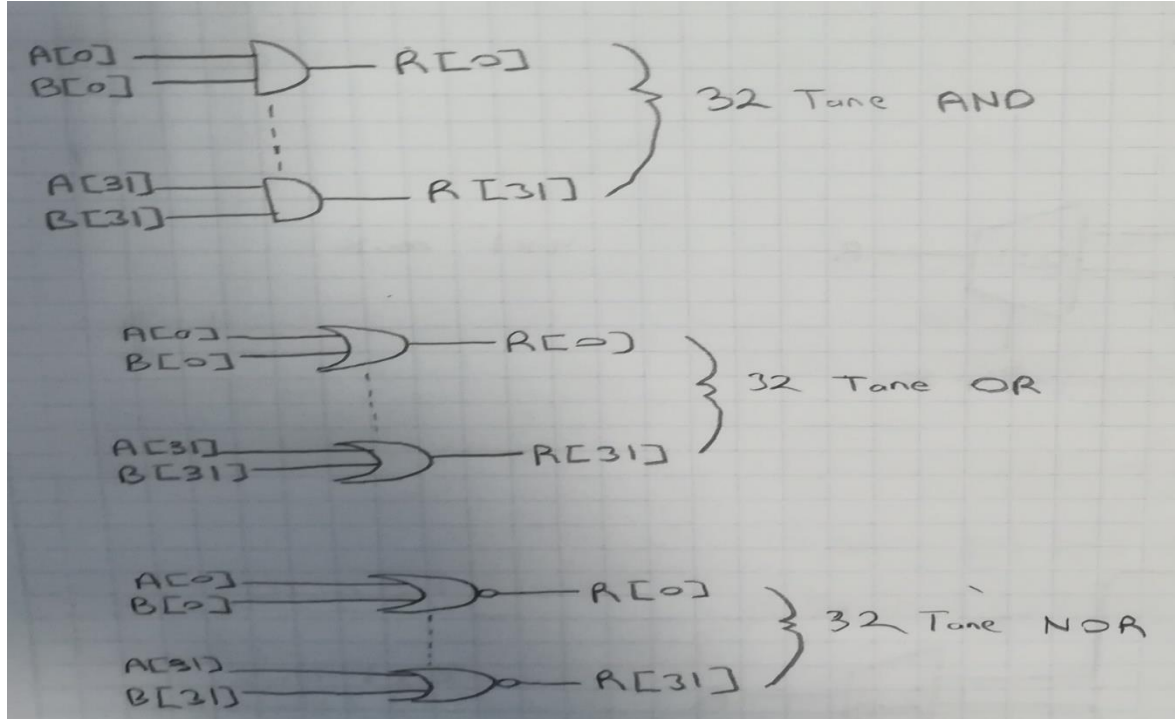 A[0]
B[0]
R[0]
32 Tane AND
A[31]
B[31]
R[31]
A[0]
B[0]
R[0]
32 Tane OR
A[31]
B[31]
R[31]
A[0]
B[0]
R[0]
32 Tane NOR
A[31]
B[31]
R[31]